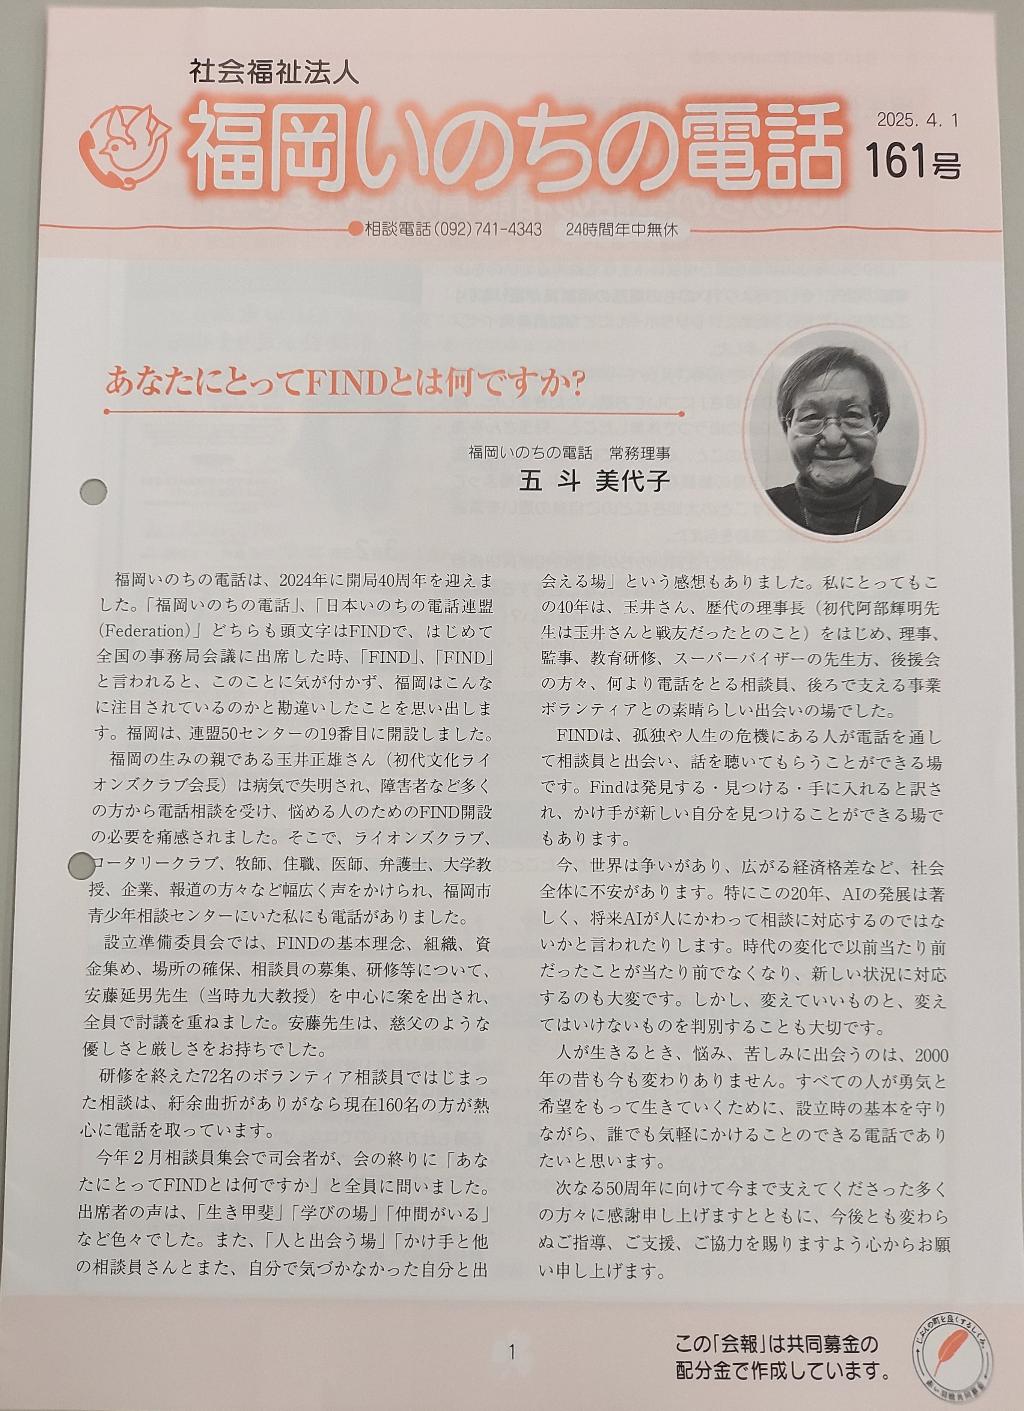 社会福祉法人
福岡いのちの電話
2025. 4. 1
161号
●相談電話(092)741-4343　24時間年中無休
あなたにとってFINDとは何ですか?
福岡いのちの電話　常務理事
五 斗 美代子
　福岡いのちの電話は、2024年に開局40周年を迎えま
した。「福岡いのちの電話」、「日本いのちの電話連盟
(Federation)」どちらも頭文字はFINDで、はじめて
全国の事務局会議に出席した時、「FIND」、「FIND」
と言われると、このことに気が付かず、福岡はこんな
に注目されているのかと勘違いしたことを思い出しま
す。福岡は、連盟50センターの19番目に開設しました。
　福岡の生みの親である玉井正雄さん（初代文化ライ
オンズクラブ会長）は病気で失明され、障害者など多く
の方から電話相談を受け、悩める人のためのFIND開設
の必要を痛感されました。そこで、ライオンズクラブ、
ロータリークラブ、牧師、住職、医師、弁護士、大学教
授、企業、報道の方々など幅広く声をかけられ、福岡市
青少年相談センターにいた私にも電話がありました。
　設立準備委員会では、FINDの基本理念、組織、資
金集め、場所の確保、相談員の募集、研修等について、
安藤延男先生（当時九大教授）を中心に案を出され、
全員で討議を重ねました。安藤先生は、慈父のような
優しさと厳しさをお持ちでした。
　研修を終えた72名のボランティア相談員ではじまっ
た相談は、紆余曲折がありがなら現在160名の方が熱
心に電話を取っています。
　今年２月相談員集会で司会者が、会の終りに「あな
たにとってFINDとは何ですか」と全員に問いました。
出席者の声は、「生き甲斐」「学びの場」「仲間がいる」
など色々でした。また、「人と出会う場」「かけ手と他
の相談員さんとまた、自分で気づかなかった自分と出
会える場」という感想もありました。私にとってもこ
の40年は、玉井さん、歴代の理事長（初代阿部輝明先
生は玉井さんと戦友だったとのこと）をはじめ、理事、
監事、教育研修、スーパーバイザーの先生方、後援会
の方々、何より電話をとる相談員、後ろで支える事業
ボランティアとの素晴らしい出会いの場でした。
　FINDは、孤独や人生の危機にある人が電話を通し
て相談員と出会い、話を聴いてもらうことができる場
です。Findは発見する・見つける・手に入れると訳さ
れ、かけ手が新しい自分を見つけることができる場で
もあります。
　今、世界は争いがあり、広がる経済格差など、社会
全体に不安があります。特にこの20年、AIの発展は著
しく、将来AIが人にかわって相談に対応するのではな
いかと言われたりします。時代の変化で以前当たり前
だったことが当たり前でなくなり、新しい状況に対応
するのも大変です。しかし、変えていいものと、変え
てはいけないものを判別することも大切です。
　人が生きるとき、悩み、苦しみに出会うのは、2000
年の昔も今も変わりありません。すべての人が勇気と
希望をもって生きていくために、設立時の基本を守り
ながら、誰でも気軽にかけることのできる電話であり
たいと思います。
　次なる50周年に向けて今まで支えてくださった多く
の方々に感謝申し上げますとともに、今後とも変わら
ぬご指導、ご支援、ご協力を賜りますよう心からお願
い申し上げます。
1
この「会報」は共同募金の
配分金で作成しています。
じぶんの町を良くするしくみ。
赤い羽根共同募金